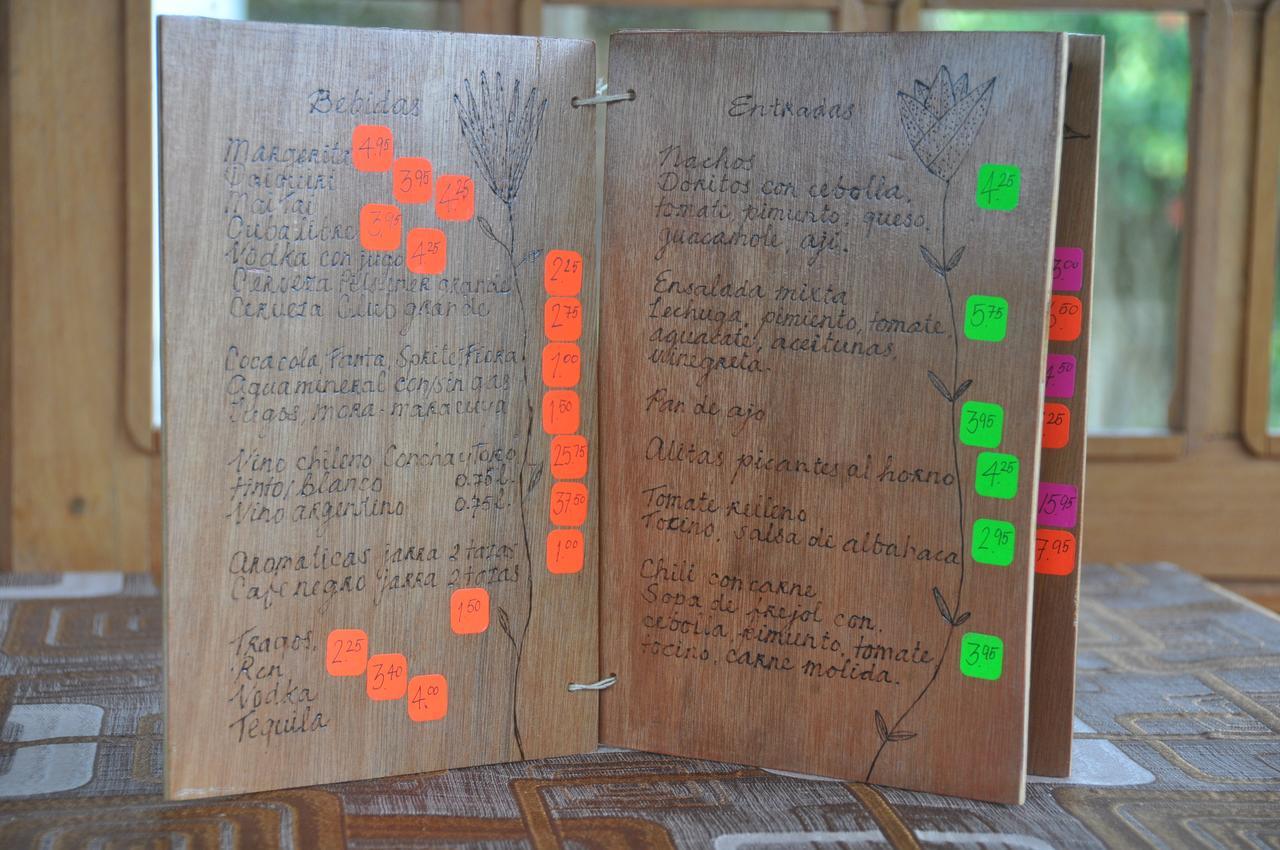 Bebidas
Margerita 4.95
Daiquiri 3.95
Mai Tai 4.25
Cubalibre 3.95
Vodka con jugo 4.25
Cerveza Pilsener grande 2.25
Cerveza Club grande 2.75
Cocacola, Fanta, Sprite, Fiora 1.00
Agua mineral con/sin gas
Jugos, mora-maracuya 1.50
Vino chileno Conchay Toro 25.75
tinto/blanco 0.75 l.
Vino argentino 0.75 l. 37.50
Aromaticas jarra 2 tazas 1.00
Cafe negro jarra 2 tazas
1.50
Tragos.
Ron 2.25
Vodka 3.40
Tequila 4.00
Entradas
Nachos
Doritos con cebolla, 4.25
tomate, pimiento, queso,
guacamole, ají.
Ensalada mixta
Lechuga, pimiento, tomate, 5.75
aguacate, aceitunas,
vinegreta.
Pan de ajo 3.95
Alitas picantes al horno 4.25
Tomate relleno
Tocino, salsa de albahaca 2.95
Chili con carne
Sopa de frejol con
cebolla, pimiento, tomate, 3.95
tocino, carne molida.
15.95
7.95